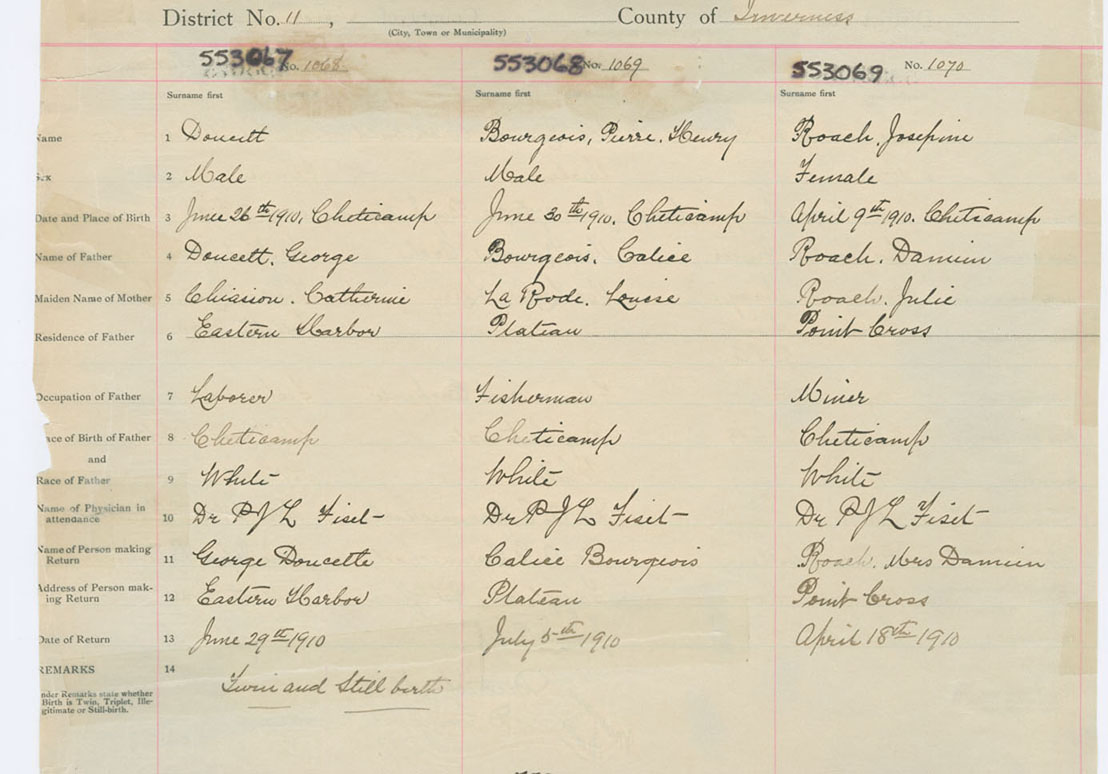 District No. 11, County of Inverness
(City, Town or Municipality)
553067 No. 1068 553068 No. 1069 553069 No. 1070
Surname first Surname first Surname first
Name 1 Doucett Bourgeois, Pierre. Henry Roach, Josepine
Sex 2 Male Male Female
Date and Place of Birth 3 June 26th 1910, Cheticamp June 30th 1910, Cheticamp April 9th 1910. Cheticamp
Name of Father 4 Doucett, George Bourgeois, Calice Roach. Damien
Maiden Name of Mother 5 Chiasion. Catherine La Rode. Louise Roach. Julie
Residence of Father 6 Eastern Harbor Plateau Point Cross
Occupation of Father 7 Laborer Fisherman Miner
ace of Birth of Father 8 Cheticamp Cheticamp Cheticamp
and
Race of Father 9 White White White
Name of Physician in
attendance 10 Dr P J L Fiset Dr P J L Fiset Dr P J L Fiset
Name of Person making
Return 11 George Doucette Calice Bourgeois Roach. Mrs Damien
Address of Person mak-
ing Return 12 Eastern Harbor Plateau Point Cross
Date of Return 13 June 29th 1910 July 5th 1910 April 18th 1910
REMARKS 14
Twin and Still birth
nder Remarks state whether
Birth is Twin, Triplet, Ille-
gitimate or Still-birth.